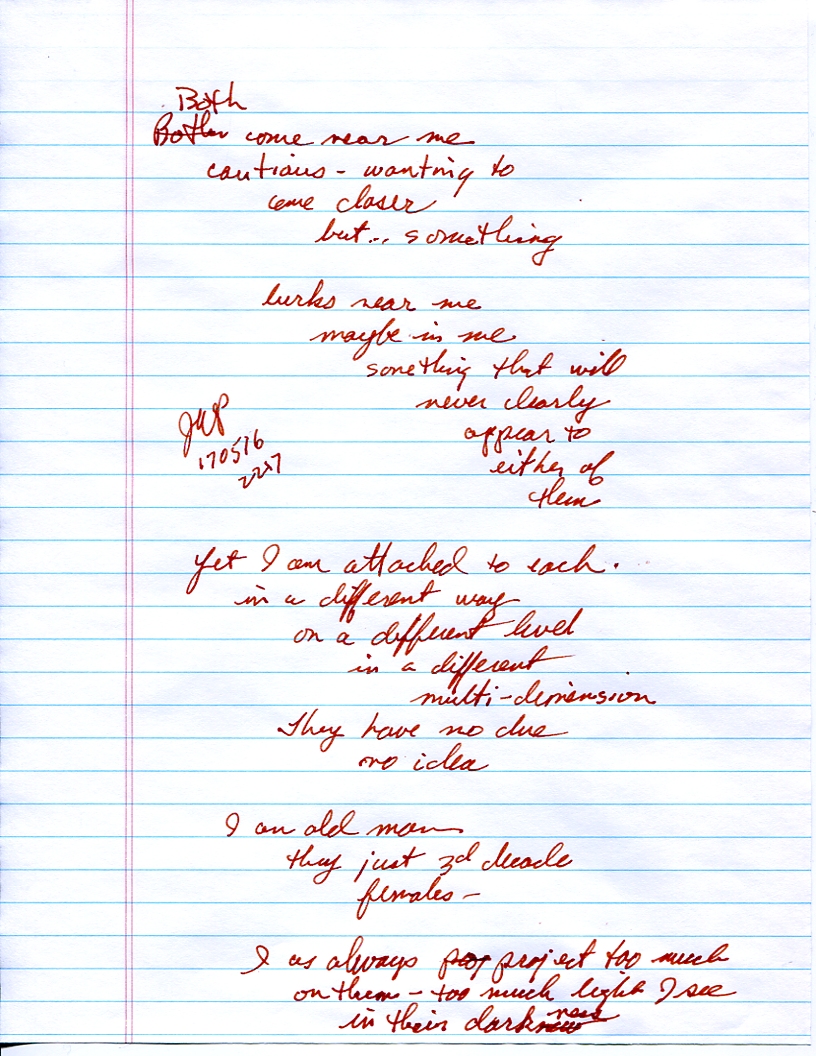 Both
Bother come near me
cautious - wanting to
come closer
but... something
lurks near me
maybe in me
something that will
never clearly
appear to
either of
them
JWP
170516
2217
Yet I am attached to each.
in a different way
on a different level
in a different
multi-dimension
They have no clue
no idea
I an old man
they just 3rd decade
females -
I as always project too much
on them - too much light I see
in their darkness